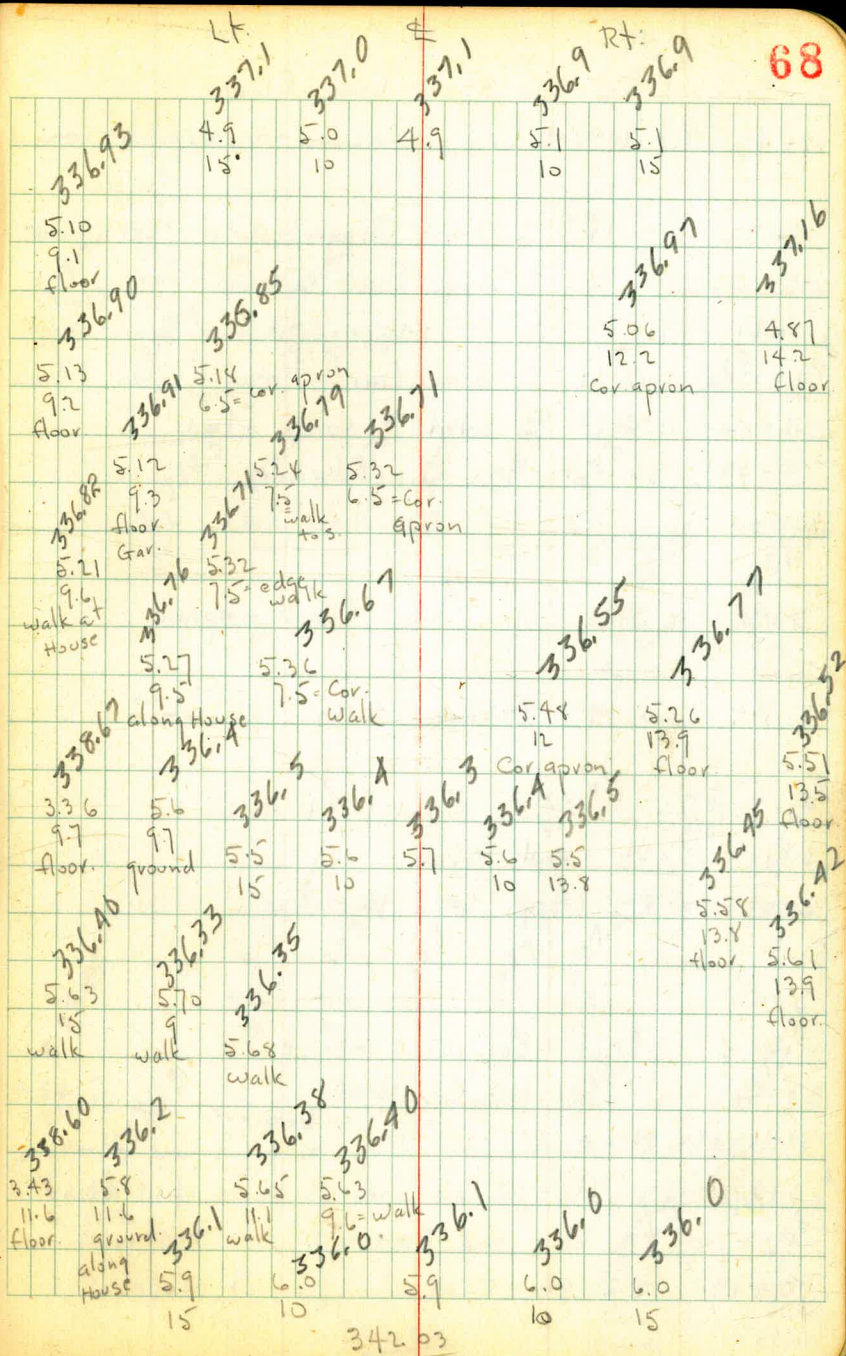 Lt. ℄ Rt.
68
337.1 337.0 337.1 336.9 336.9
4.9 5.0 4.9 5.1 5.1
15 10 10 15
336.93
5.10
9.1
floor
336.97 337.16
5.06 4.87
12.2 14.2
Cor. apron floor
336.90 336.85
5.13 5.18
9.2 6.5 = Cor. apron
floor
336.91 336.79 336.71
5.12 5.24 5.32
9.3 7.5 = 6.5 = Cor.
floor walk apron
Gar. to S
336.82 336.71
5.21 5.32
9.6 7.5 = edge
walk at walk
House
336.76 336.67
5.27 5.36
9.5 7.5 = Cor.
along House Walk
336.55 336.77
5.48 5.26
12 13.9
Cor. apron floor
336.52
5.51
13.5
floor
338.67 336.4
3.36 5.6
9.7 9.7
floor. ground
336.5 336.4 336.3 336.4 336.5
5.5 5.6 5.7 5.6 5.5
15 10 10 13.8
336.45
5.58
13.8
floor
336.42
5.61
13.9
floor.
336.40 336.33 336.35
5.63 5.70 5.68
15 9 walk
walk walk
338.60 336.2 336.38 336.40
3.43 5.8 5.65 5.63
11.6 11.6 11.1 9.6 = walk
floor. ground walk
along
House
336.1 336.0 336.1 336.0 336.0
5.9 6.0 5.9 6.0 6.0
15 10 10 15
342.03